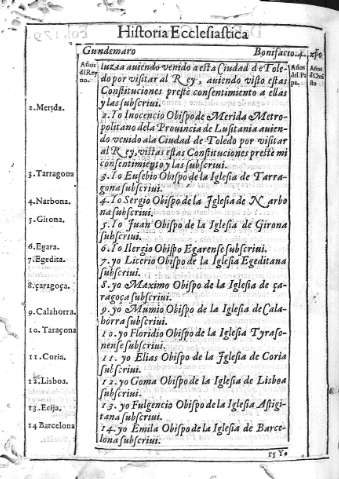 Historia Ecclesiastica
Gundemaro
Bonifacio. 4.
Años del Rey no.
Años del Papa.
luzza auiendo venido a esta Ciudad de Tole-
do por visitar al Rey, auiendo visto estas
Constituciones presté consentimiento a ellas
y las subscriui.
2. Merida.
2. Io Inocencio Obispo de Merida Metro-
politano de la Prouincia de Lusitania auien-
do venido a la Ciudad de Toledo por visitar
al Rey, vistas estas Constituciones presté mi
consentimiento y las subscriui.
3. Tarragona
3. Io Eusebio Obispo de la Iglesia de Tarra-
gona subscriui.
4. Narbona.
4. Io Sergio Obispo de la Iglesia de Narbo
na subscriui.
5. Girona.
5. Io Juan Obispo de la Iglesia de Girona
subscriui.
6. Egara.
6. Io Ilergio Obispo Egarense subscriui.
7. Egedita.
7. yo Licerio Obispo de la Iglesia Egeditana
subscriui.
8. çaragoça.
8. yo Maximo Obispo de la Iglesia de ça-
ragoça subscriui.
9. Calahorra.
9. yo Mumio Obispo de la Iglesia de Cala-
horra subscriui.
10. Taraçona
10. yo Floridio Obispo de la Iglesia Tyraso-
nense subscriui.
11. Coria.
11. yo Elias Obispo de la Iglesia de Coria
subscriui.
12. Lisboa.
12. yo Goma Obispo de la Iglesia de Lisboa
subscriui.
13. Ecija.
13. yo Fulgencio Obispo de la Iglesia Astigi-
tana subscriui.
14 Barcelona
14. yo Emila Obispo de la Iglesia de Barce-
lona subscriui.
15 Yo